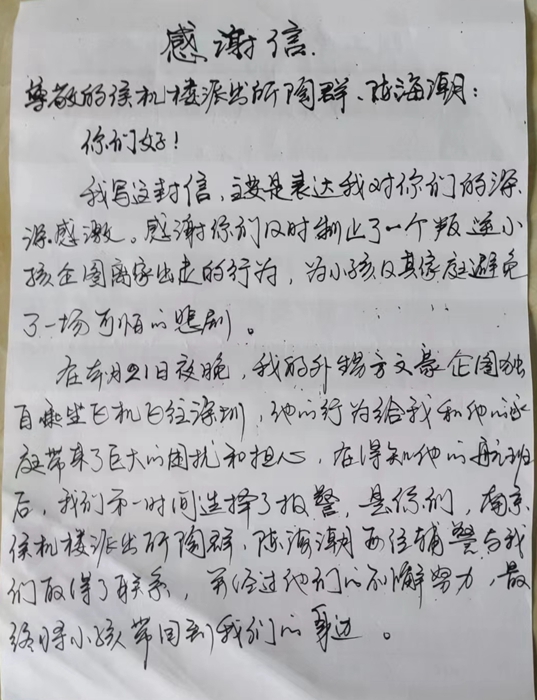 感谢信.
尊敬的侯机楼派出所陶群、陈海潮:
你们好!
我写这封信,主要是表达我对你们的深
深感激。感谢你们及时制止了一个叛逆小
孩企图离家出走的行为,为小孩及其家庭避免
了一场可怕的悲剧。
在本月21日夜晚,我的外甥方文豪企图独
自乘坐飞机飞往深圳,他的行为给我和他的家
庭带来了巨大的困扰和担心,在得知他的航班
后,我们第一时间选择了报警,是你们,南京
侯机楼派出所陶群、陈海潮两位辅警与我
们取得了联系,并经过他们的不懈努力,最
终将小孩带回到我们的身边。